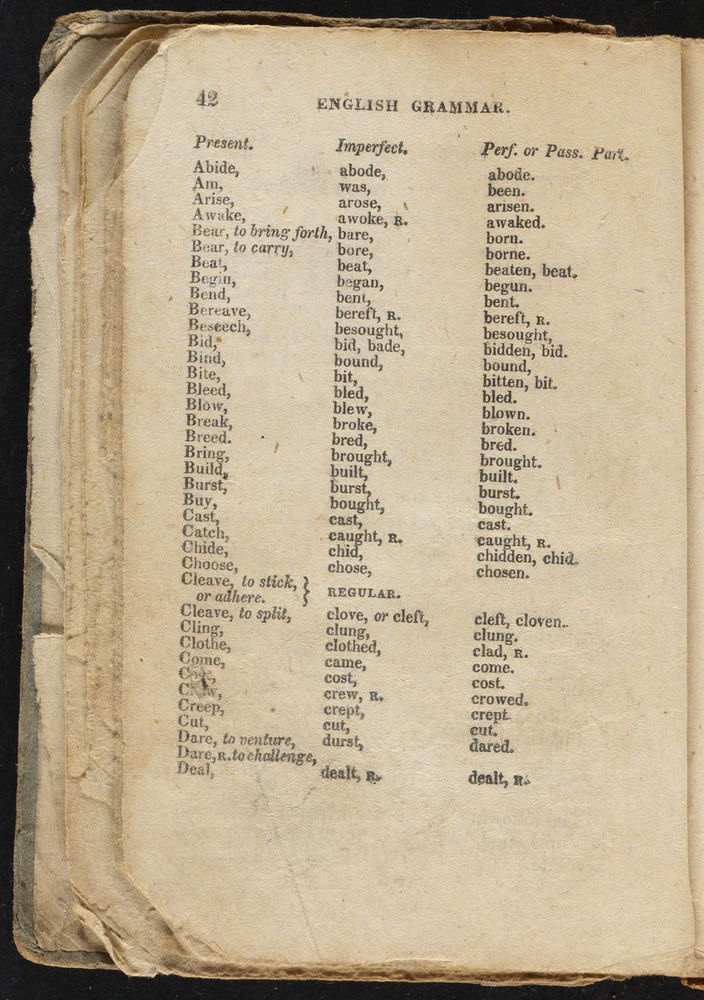 42 ENGLISH GRAMMAR.
Present. Imperfect. Perf. or Pass. Part.
Abide, abode, abode.
Am, was, been.
Arise, arose, arisen.
Awake, awoke, R. awaked.
Bear, to bring forth, bare, born.
Bear, to carry, bore, borne.
Beat, beat, beaten, beat.
Begin, began, begun.
Bend, bent, bent.
Bereave, bereft, R. bereft, R.
Beseech, besought, besought,
Bid, bid, bade, bidden, bid.
Bind, bound, bound,
Bite, bit, bitten, bit.
Bleed, bled, bled.
Blow, blew, blown.
Break, broke, broken.
Breed. bred, bred.
Bring, brought, brought.
Build, built, built.
Burst, burst, burst.
Buy, bought, bought.
Cast, cast, cast.
Catch, caught, R. caught, R.
Chide, chid, chidden, chid.
Choose, chose, chosen.
Cleave, to stick, }
or adhere. } REGULAR.
Cleave, to split, clove, or cleft, cleft, cloven.
Cling, clung, clung.
Clothe, clothed, clad, R.
Come, came, come.
Cost, cost, cost.
Crow, crew, R. crowed.
Creep, crept, crept.
Cut, cut, cut.
Dare, to venture, durst, dared.
Dare, R. to challenge,
Deal, dealt, R. dealt, R.